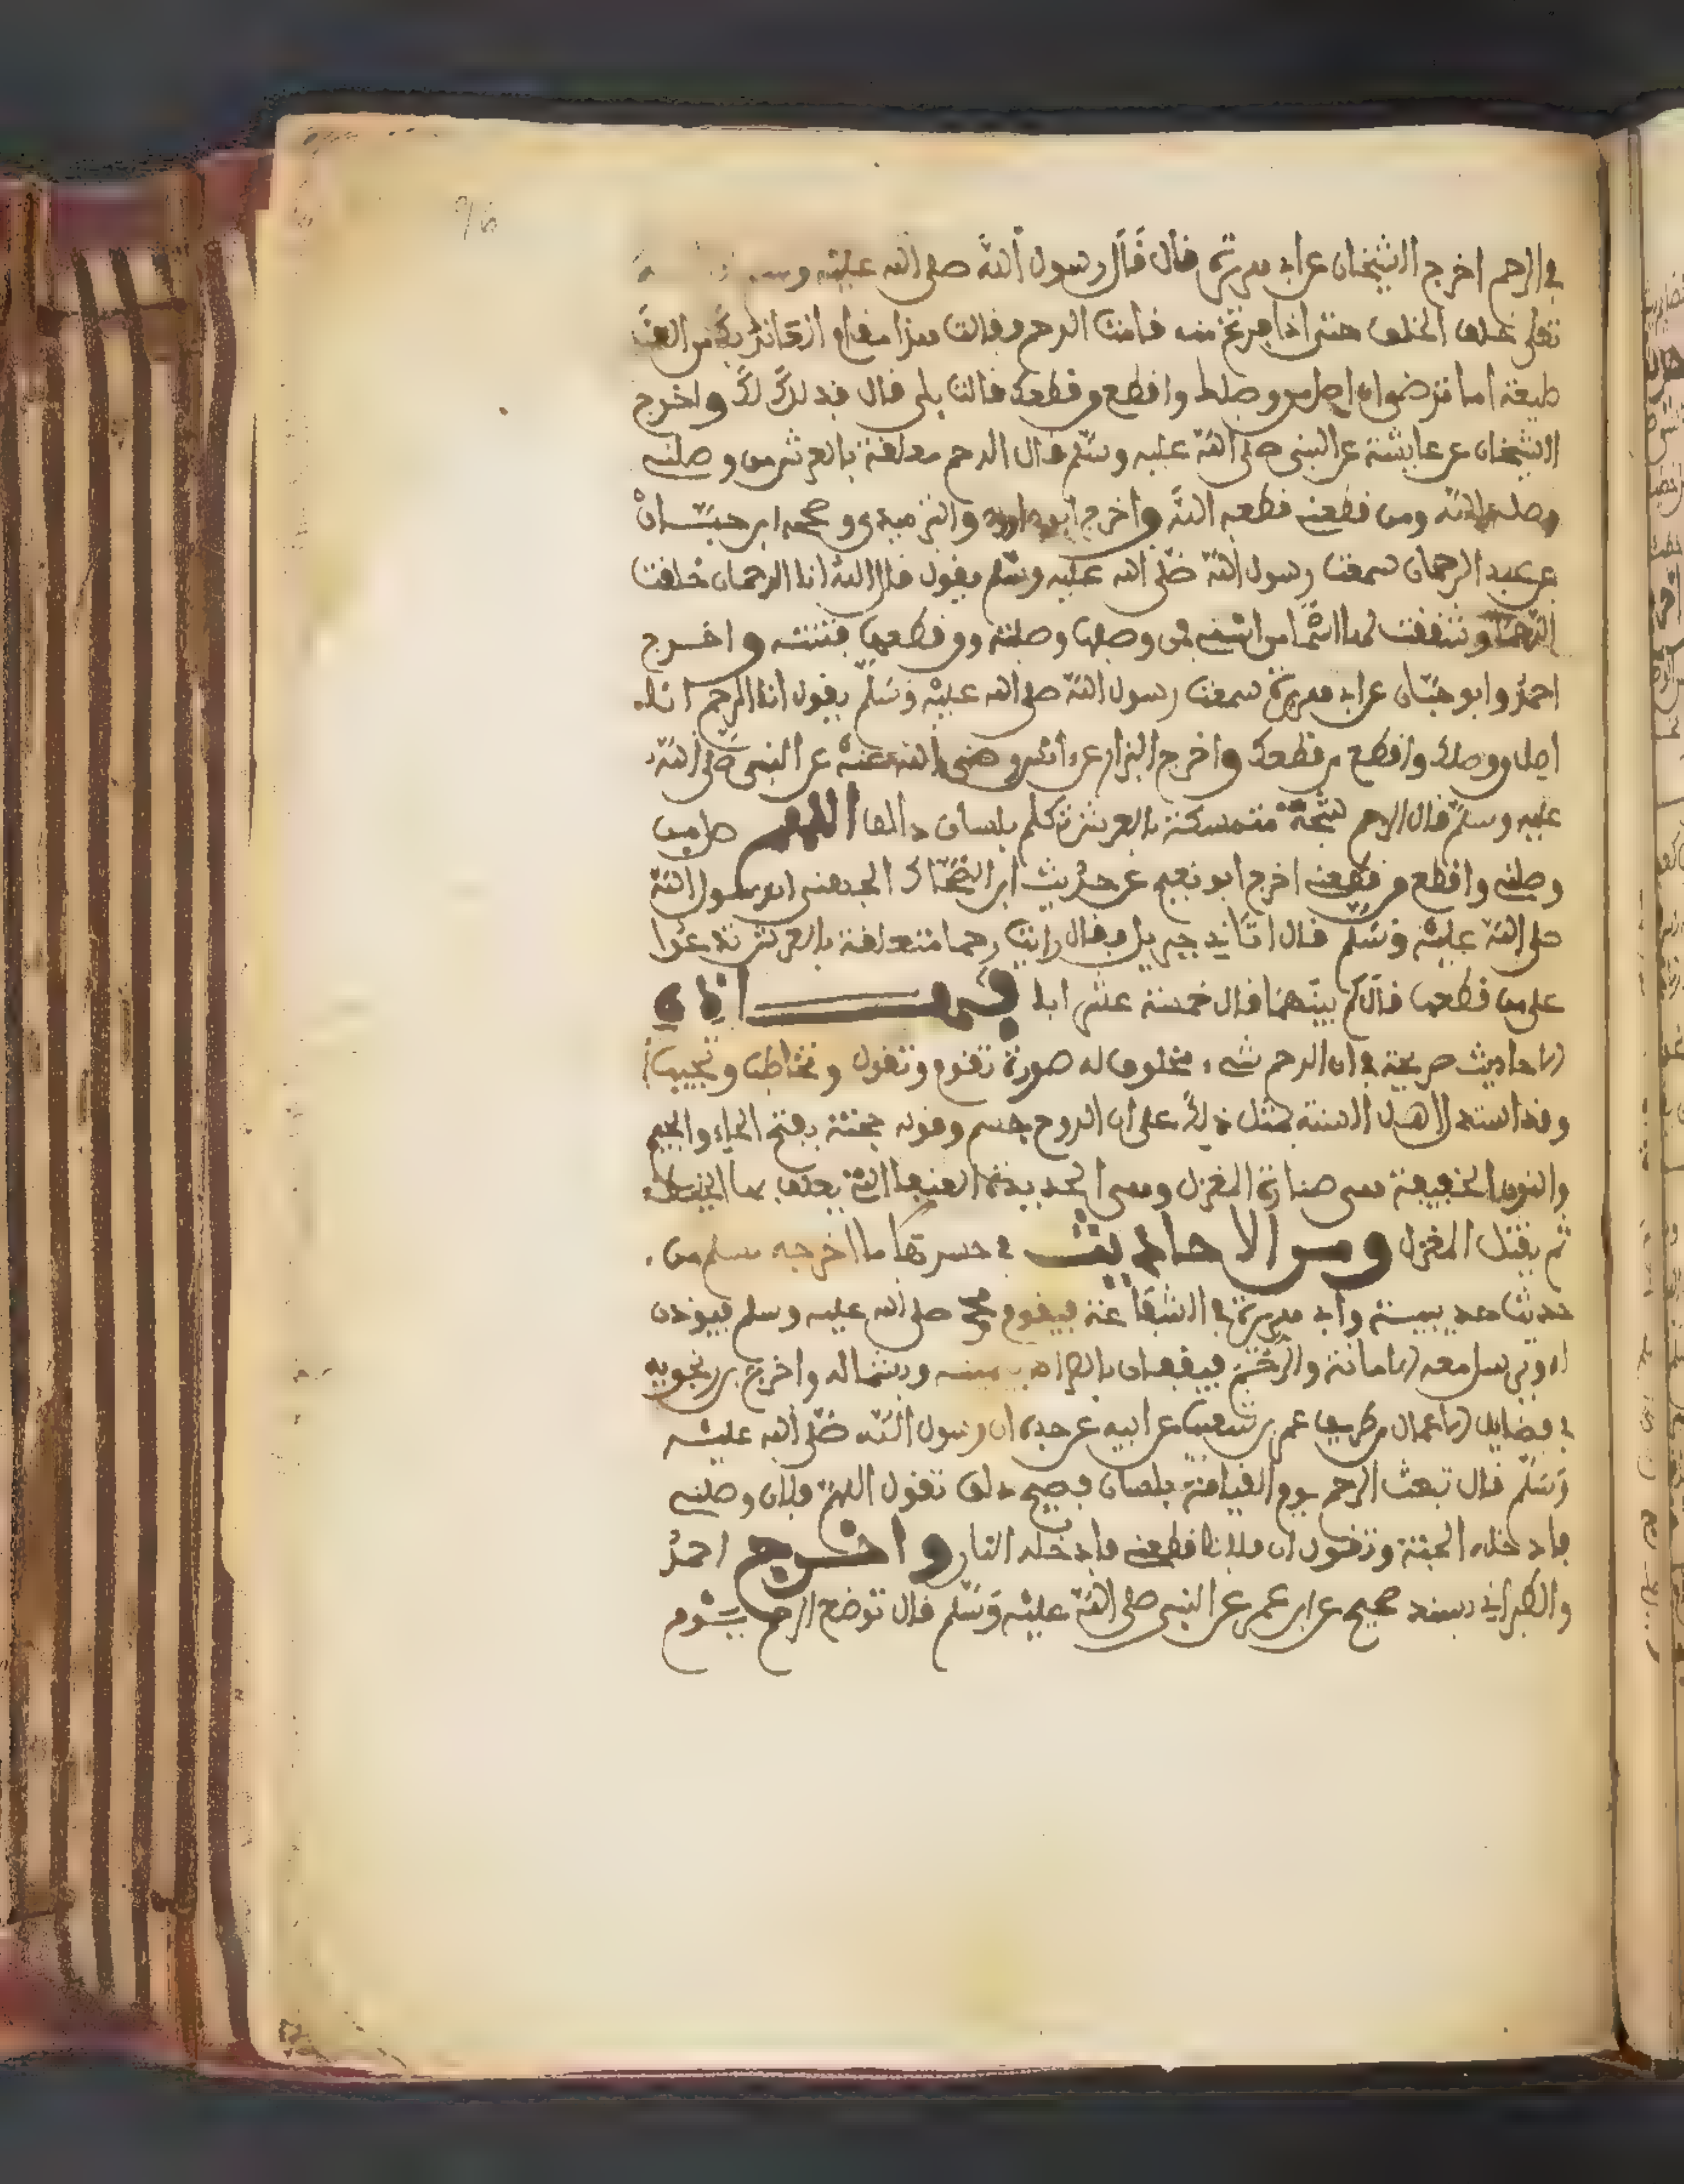 96
في الرحم اخرج الشيخان عن ابي هريرة قال قال رسول الله صلى الله عليه
تعلى خلق الخلق حتى اذا فرغ منه قامت الرحم فقالت هذا مقام العائذ بك من القـ
طيعة اما ترضوان اصل من وصلك واقطع من قطعك قالت بلى قال فذلك لك واخرج
الشيخان عن عايشة عن النبي صلى الله عليه وسلم قال الرحم معلقة بالعرش من وصلني
وصله الله ومن قطعني قطعه الله واخرج ابو داود والترميذي وصححه ابن حبان
عن عبد الرحمان سمعت رسول الله صلى الله عليه وسلم يقول قال الله انا الرحمان خلقت
الرحم وشققت لها اسما من اسمي فمن وصلها وصلته ومن قطعها بتته واخرج
احمد وابو حبان عن ابي هريرة سمعت رسول الله صلى الله عليه وسلم يقول انا الرحم انا
اصل من وصلك واقطع من قطعك واخرج البزار عن انس رضي الله عنه عن النبي صلى الله
عليه وسلم قال الرحم شجنة متمسكة بالعرش تكلم بلسان ذالق اللهم صل من
وصلني واقطع من قطعني اخرج ابو نعيم عن حديث ابن الضحاك الجهني ان رسول الله
صلى الله عليه وسلم قال اتاني جبريل فقال رايت رحما متعلقة بالعرش تدعوا
على من قطعها قال كم بينهما قال خمسة عشر ابا
الاحاديث صريحة في ان الرحم شيء مخلوق له صورة تقوم وتقول وتخاطب وتجيب
وقد استدل اهل السنة بمثل ذلك على ان الروح جسم وقوله حجنة بفتح الحاء والجيم
والنون الخفيفة هي صنارة المغزل وهي الحديدة العقفا التي يعلق بها الخيط
ثم يفتل المغزل ومن الاحاديث في حسرتها ما اخرجه مسلم من
حديث حذيبة وابي هريرة في الشفاعة فيقوم محمد صلى الله عليه وسلم فيوذن
له وترسل معه الامانة والرحم فيقفان بالصراط يمينه وبشماله واخرج بن زنجويه
في فضايل الاعمال من طريق عمر بن شعيب عن ابيه عن جده ان رسول الله صلى الله عليه
وسلم قال تبعث الرحم يوم القيامة بلسان فصيح ذلق تقول اللهم فلان وصلني
فادخله الجنة وتقول ان فلانا قطعني فادخله النار واخرج احمد
والطبراني بسند صحيح عن ابن عمر عن النبي صلى الله عليه وسلم قال توضع الرحم يوم